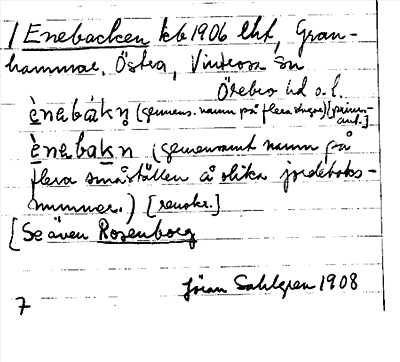 1 Enebacken kb 1906 lht, Gran-
hammar, Östra, Vintrosa sn
Örebro hd o. l.
ènabàkn̥ (gemens. namn på flera stugor) [primär-
ant.]
ènabakn (gemensamt namn på
flera småställen å olika jordeboks-
nummer.) [renskr.]
[Se även Rosenborg
Jöran Sahlgren 1908
7